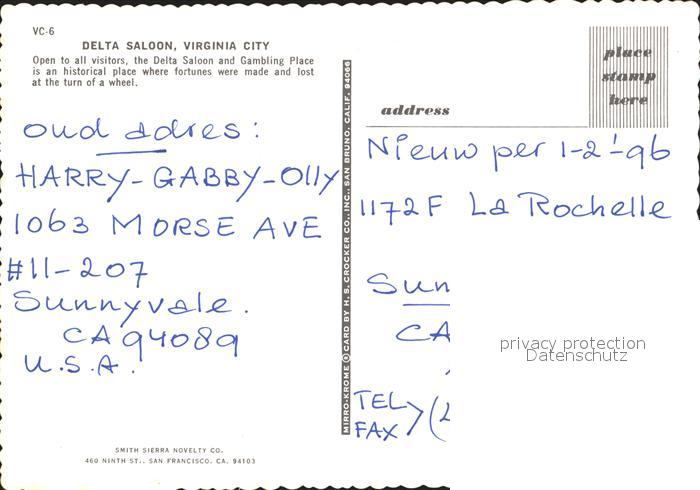 VC-6
DELTA SALOON, VIRGINIA CITY
Open to all visitors, the Delta Saloon and Gambling Place
is an historical place where fortunes were made and lost
at the turn of a wheel.
oud adres:
HARRY-GABBY-Olly
1063 MORSE AVE
#11-207
Sunnyvale.
CA 94089
U.S.A.
SMITH SIERRA NOVELTY CO.
460 NINTH ST., SAN FRANCISCO, CA. 94103
MIRRO-KROME © CARD BY H. S. CROCKER CO., INC., SAN BRUNO, CALIF. 94066
place
stamp
here
address
Nieuw per 1-2-'96
1172F La Rochelle
Sun
CA
TEL
FAX
privacy protection
Datenschutz